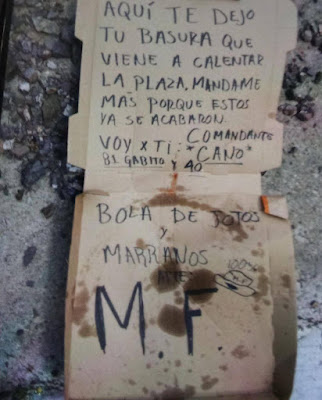 AQUÍ TE DEJO
TU BASURA QUE
VIENE A CALENTAR
LA PLAZA. MANDAME
MAS PORQUE ESTOS
YA SE ACABARON.
VOY X TI: COMANDANTE
"CANO"
GABITO Y 40
BOLA DE
Y
MARRANOS
100%
M.F.